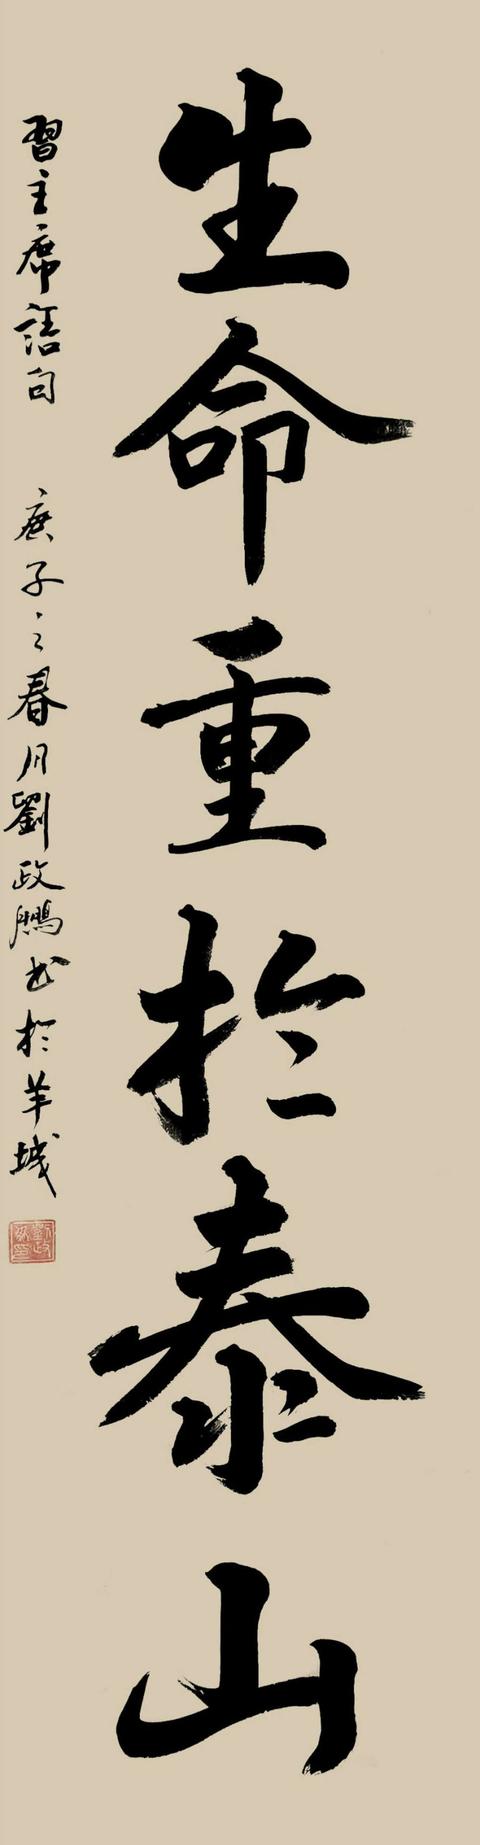 生命重於泰山
習主席語句 庚子之春月劉政鵬书於羊城